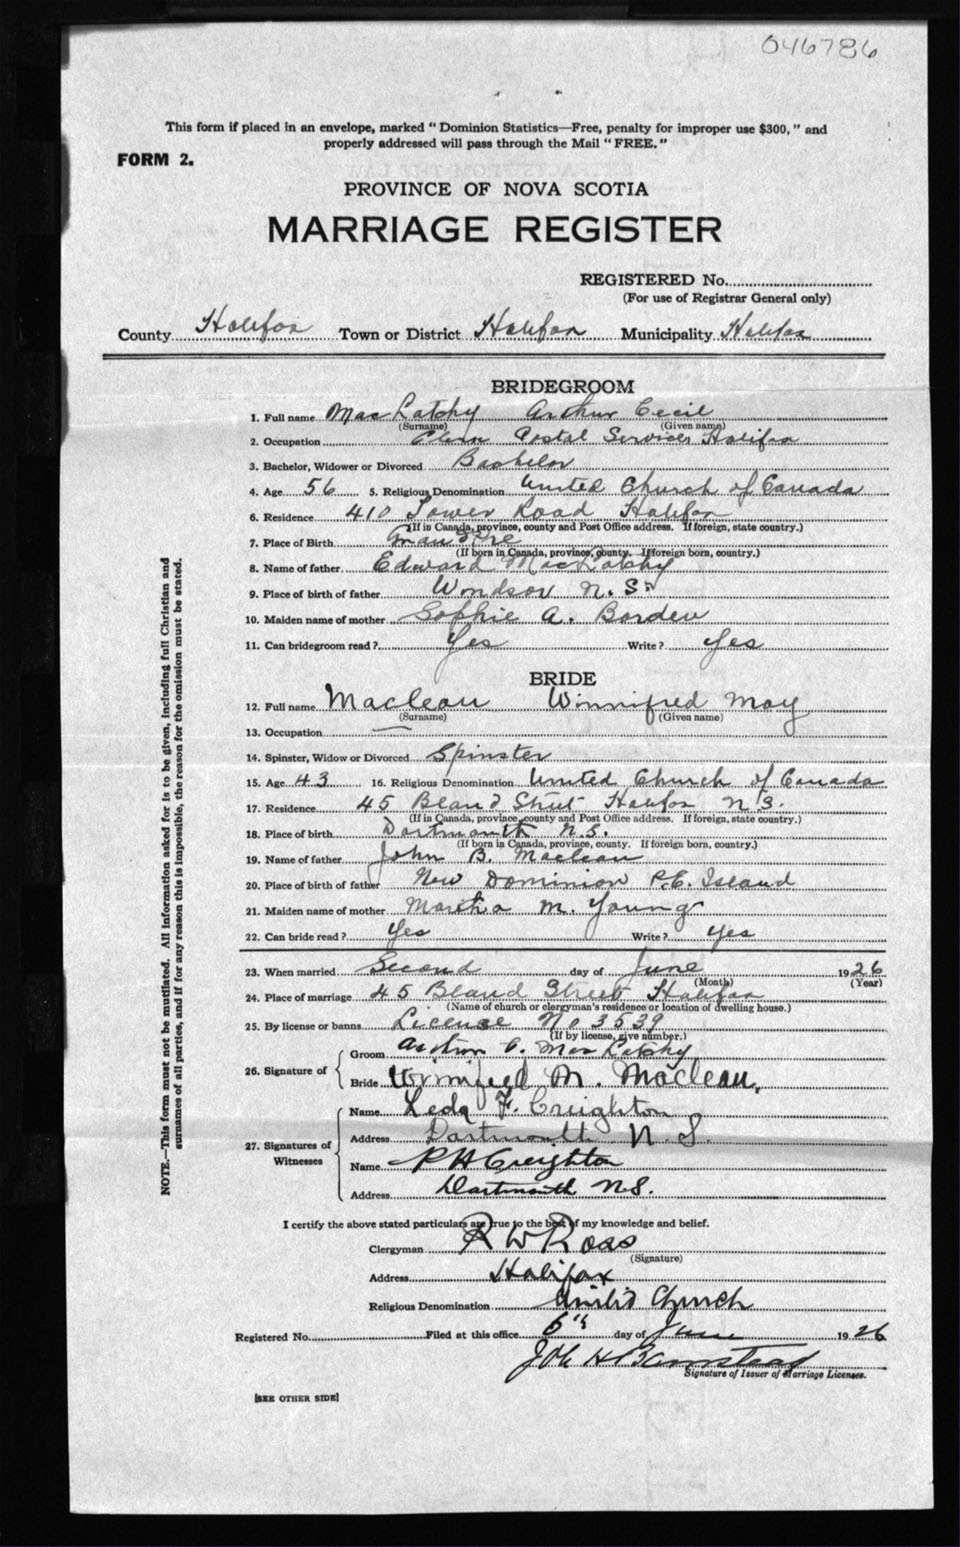 046786
This form if placed in an envelope, marked " Dominion Statistics—Free, penalty for improper use $300, " and
properly addressed will pass through the Mail " FREE. "
FORM 2.
PROVINCE OF NOVA SCOTIA
MARRIAGE REGISTER
REGISTERED No.
(For use of Registrar General only)
County Halifax Town or District Halifax Municipality Halifax
BRIDEGROOM
1. Full name MacLatchy Arthur Cecil
(Surname) (Given name)
2. Occupation Clerk Postal Services Halifax
3. Bachelor, Widower or Divorced Bachelor
4. Age 56 5. Religious Denomination United Church of Canada
6. Residence 410 Tower Road Halifax
(If in Canada, province, county and Post Office address. If foreign, state country.)
7. Place of Birth Grand Pre
(If born in Canada, province, county. If foreign born, country.)
8. Name of father Edward MacLatchy
9. Place of birth of father Windsor N. S.
10. Maiden name of mother Sophie A. Borden
11. Can bridegroom read ? Yes Write ? Yes
BRIDE
12. Full name Maclean Winnifred May
(Surname) (Given name)
13. Occupation —
14. Spinster, Widow or Divorced Spinster
15. Age 43 16. Religious Denomination United Church of Canada
17. Residence 45 Bland Street Halifax N.S.
(If in Canada, province, county and Post Office address. If foreign, state country.)
18. Place of birth Dartmouth N.S.
(If born in Canada, province, county. If foreign born, country.)
19. Name of father John B. Maclean
20. Place of birth of father New Dominion P.E. Island
21. Maiden name of mother Martha M. Young
22. Can bride read ? Yes Write ? Yes
23. When married Second day of June 1926
(Month) (Year)
24. Place of marriage 45 Bland Street Halifax
(Name of church or clergyman's residence or location of dwelling house.)
25. By license or banns License No 3539
(If by license, give number.)
26. Signature of Groom Arthur C. MacLatchy
Bride Winnifred M. Maclean.
27. Signatures of Witnesses Name Leda F. Creighton
Address Dartmouth N. S.
Name R H Creighton
Address Dartmouth N.S.
I certify the above stated particulars are true to the best of my knowledge and belief.
Clergyman R W Ross
(Signature)
Address Halifax
Religious Denomination United Church
Registered No. Filed at this office 5th day of June 1926
H
Signature of Issuer of Marriage Licenses.
[SEE OTHER SIDE]
NOTE.—This form must not be mutilated. All information asked for is to be given, including full Christian and
surnames of all parties, and if for any reason this is impossible, the reason for the omission must be stated.